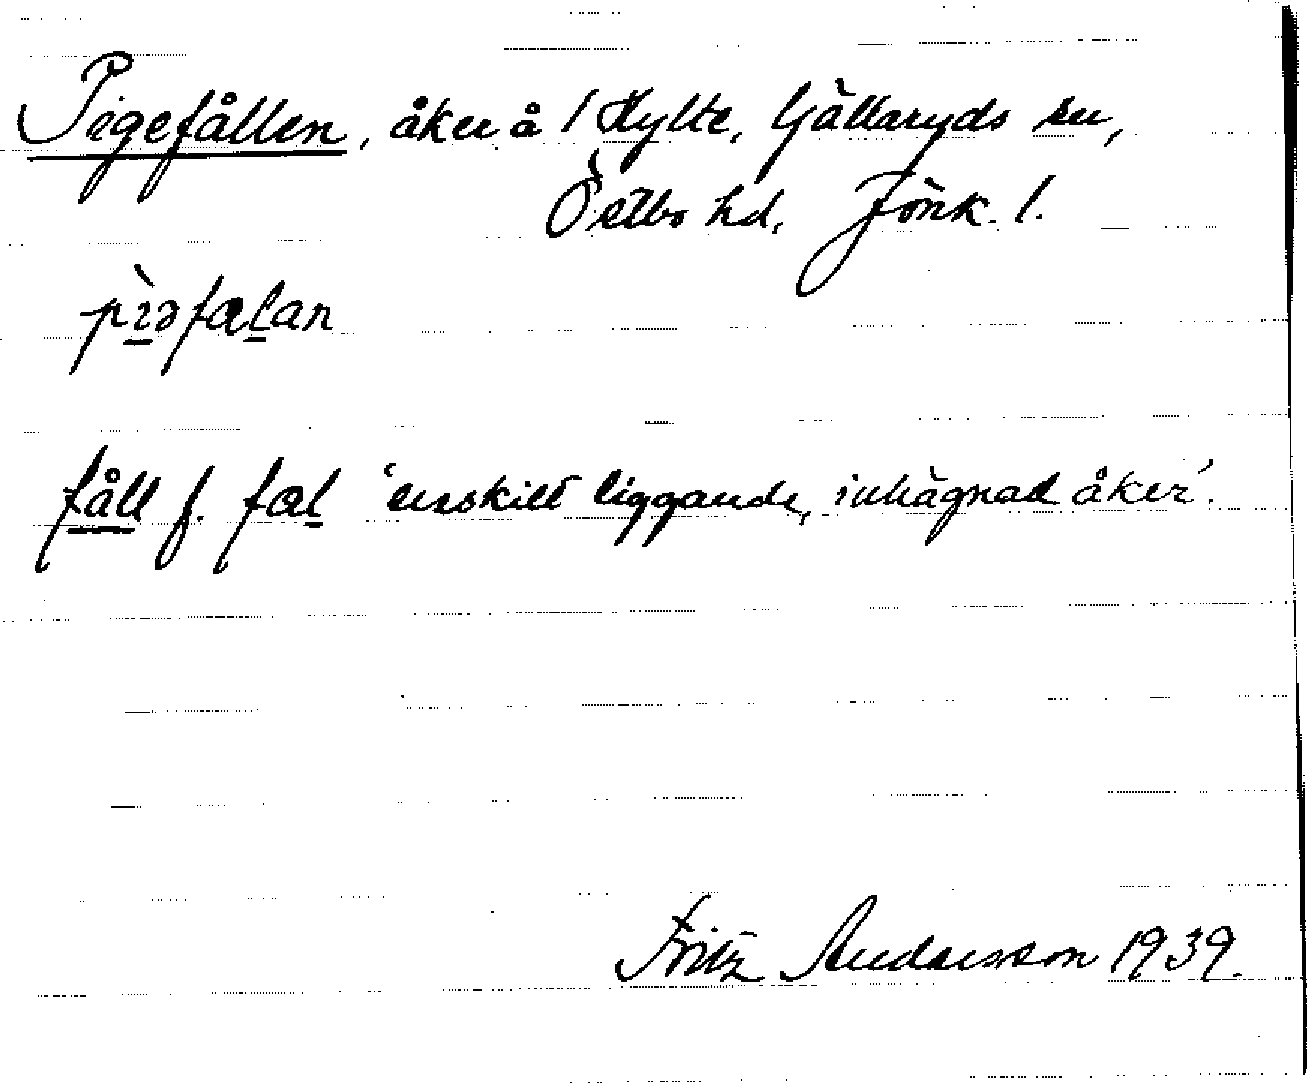 Pigefållen, åker å 1 Hylte, Gällaryds sn,
Östbo hd, Jönk. l.
pìəfælan
fåll f. fæl 'enskilt liggande, inhägnad åker'.
Fritz Andersson 1939.